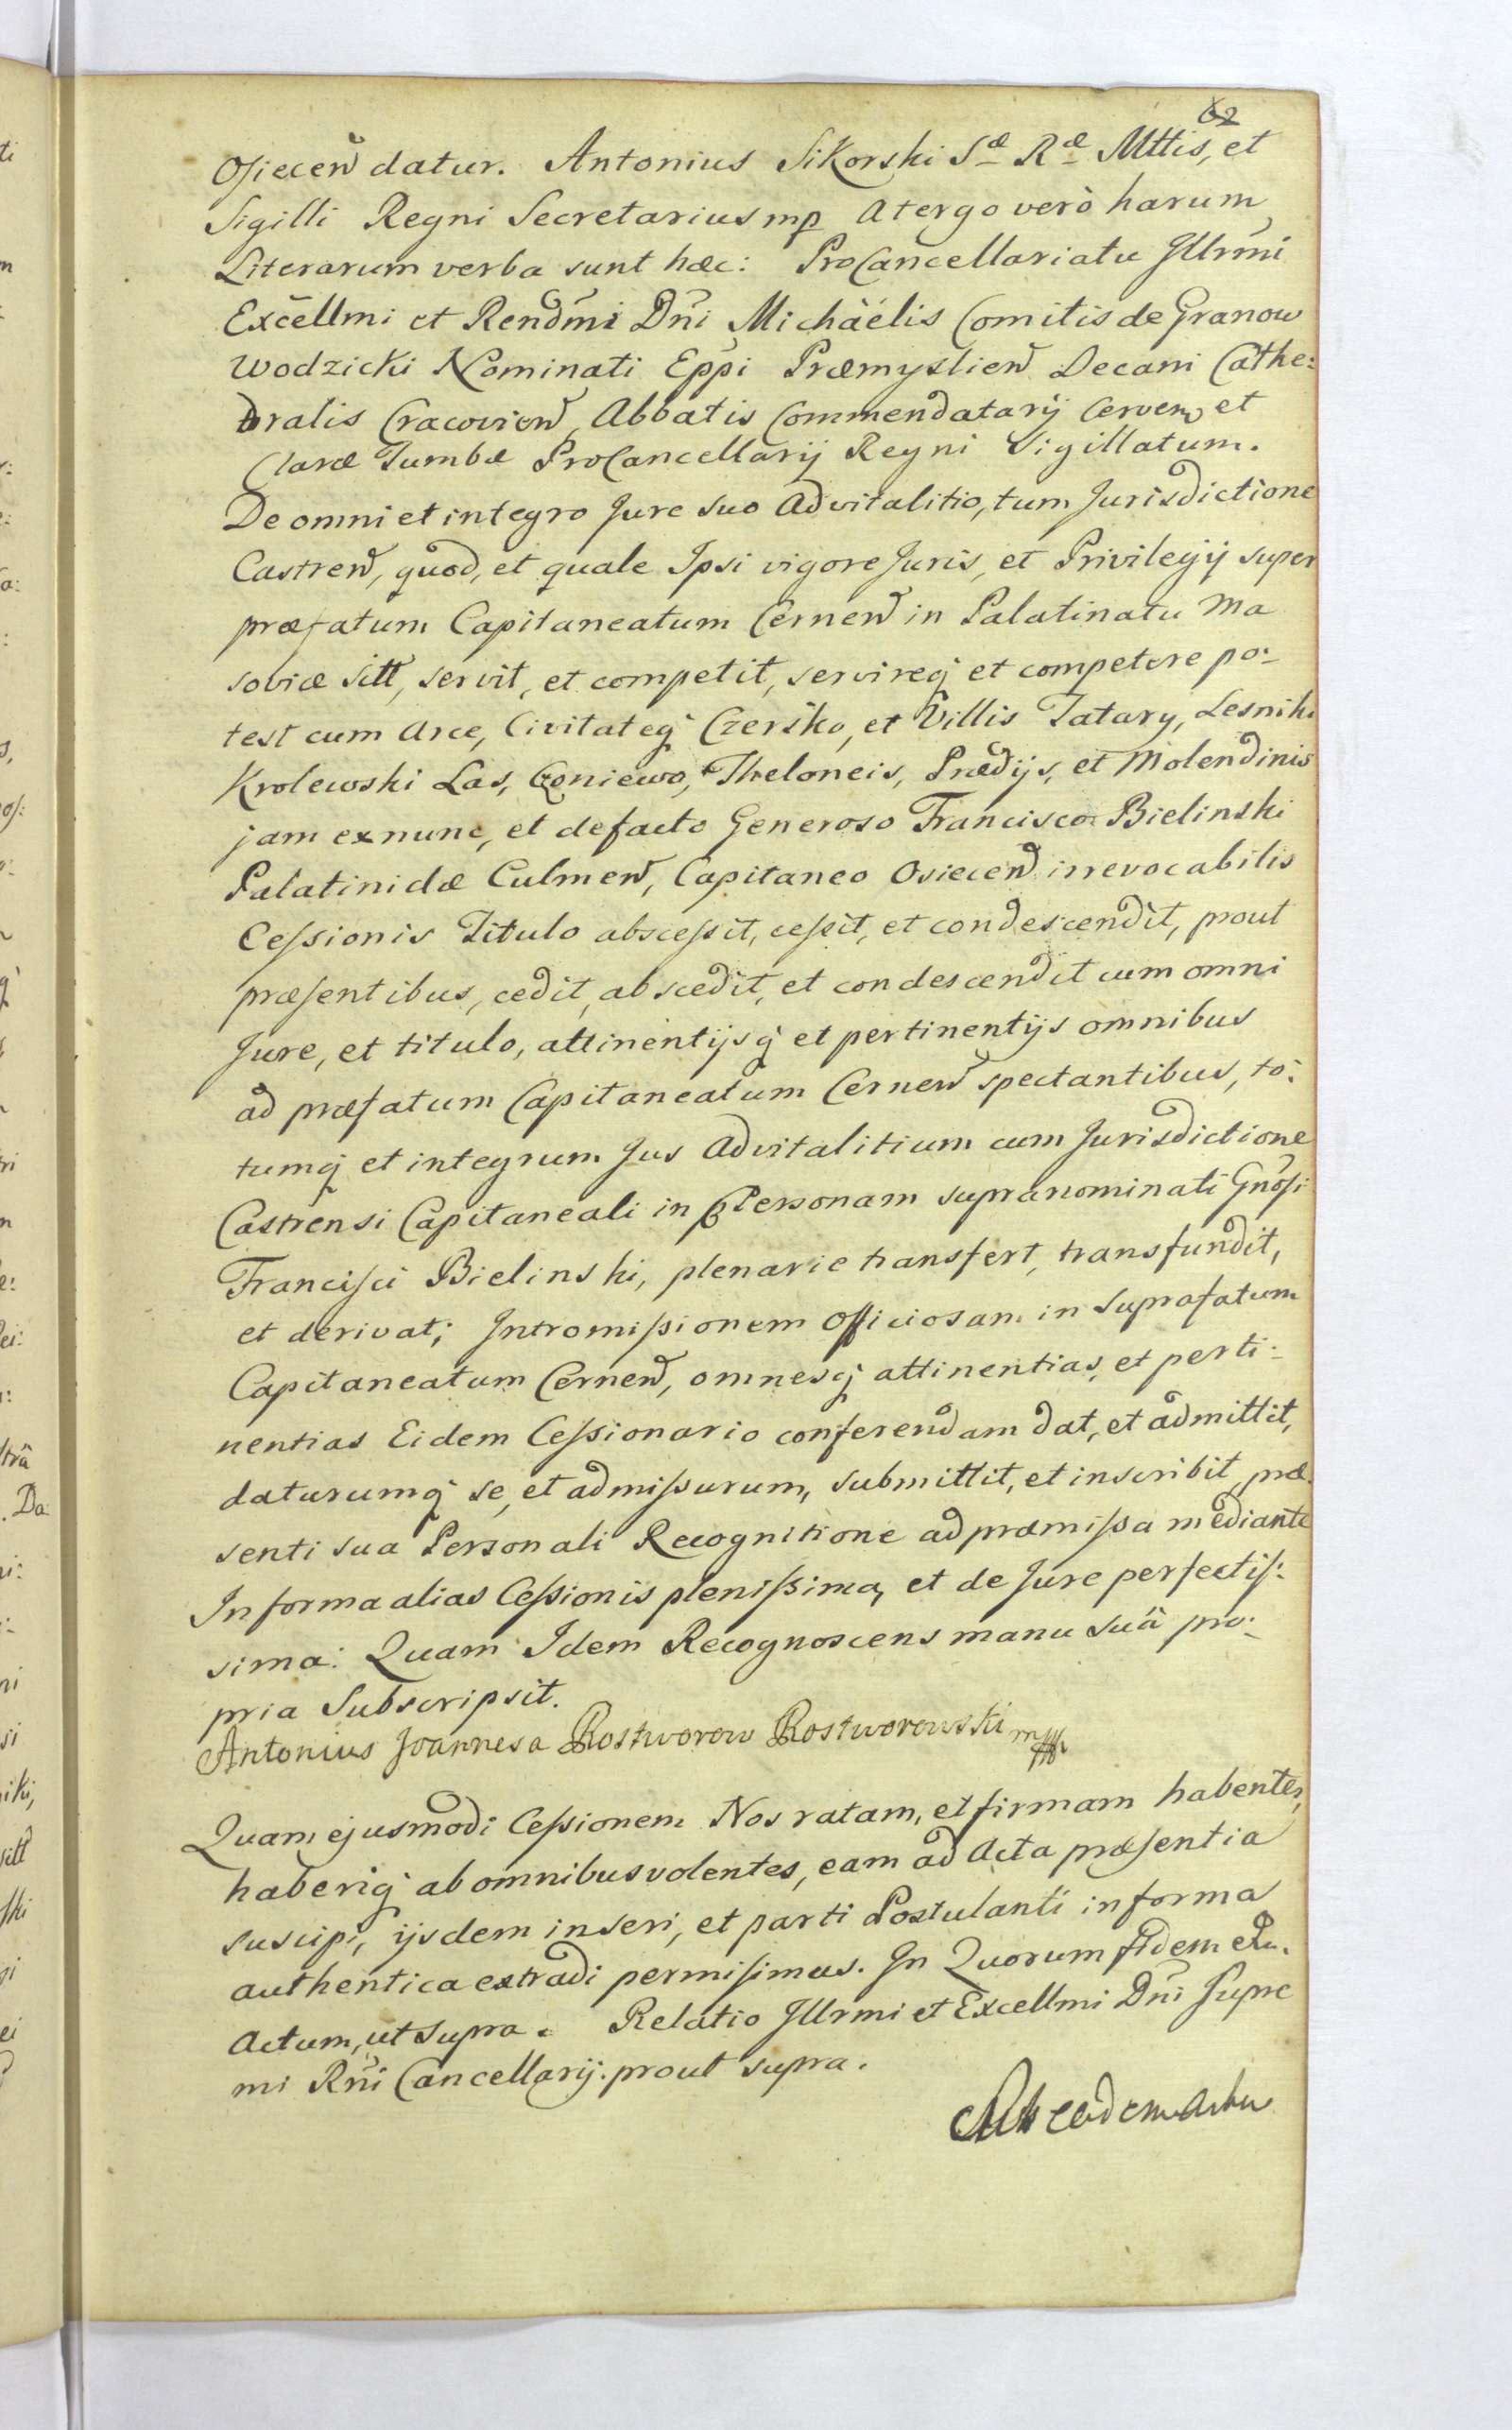 62
Osiecen datur. Antonius Sikorski Sæ Ræ Mttis, et
Sigilli Regni Secretarius mp A tergo verò harum
Literarum verba sunt hæc: ProCancellariatu Jllrmi
Excellmi et Rendmi Dni Michaëlis Comitis de Granow
Wodzicki Nominati Eppi Præmyslien Decani Cathe:
dralis Cracovien, Abbatis Commendatarij Cerven, et
Claræ Tumbæ ProCancellarij Regni Sigillatum.
De omni et integro Jure suo Advitalitio, tum Jurisdictione
Castren, quod, et quale Ipsi vigore Juris, et Privilegij super
præfatum Capitaneatum Cernen in Palatinatu Ma
soviæ sitt, servit, et competit, servireq; et competere po:
test cum Arce, Civitateq; Czersko, et Villis Tatary, Lesniki
Krolewski Las, Coniewo, Theloneis, Prædijs, et Molendinis
jam exnunc, et defacto Generoso Francisco Bielinski
Palatinidæ Culmen, Capitaneo Osiecen irrevocabilis
Cessionis Titulo abscessit, cessit, et condescendit, prout
præsentibus, cedit, abscedit, et condescendit cum omni
Jure, et titulo, attinentijsq; et pertinentijs omnibus
ad præfatum Capitaneatum Cernen spectantibus, to:
tumq; et integrum Jus Advitalitium cum Jurisdictione
Castrensi Capitaneali in Personam supranominati Gnosi
Francisci Bielinski, plenarie transfert, transfundit,
et derivat; Intromissionem Officiosam in Suprafatum
Capitaneatum Cernen, omnesq; attinentias, et perti:
nentias Eidem Cessionario conferendam dat, et admittit,
daturumq; se, et admissurum, submittit, et inscribit, præ
senti sua Personali Recognitione ad præmissa mediante
In forma alias Cessionis plenissima, et de Jure perfectis:
sima: Quam Idem Recognoscens manu suâ pro:
pria Subscripsit.
Antonius Joannes a Rostworow Rostworowski mp
Quam ejusmodi Cessionem Nos ratam, et firmam habentes,
haberiq; ab omnibus volentes, eam ad Acta præsentia
suscipi, ijsdem inseri, et parti Postulanti in forma
authentica extradi permisimus. In Quorum fidem etc.
Actum, ut supra. Relatio Jllrmi et Excellmi Dni Supre
mi Rni Cancellarij. prout supra.